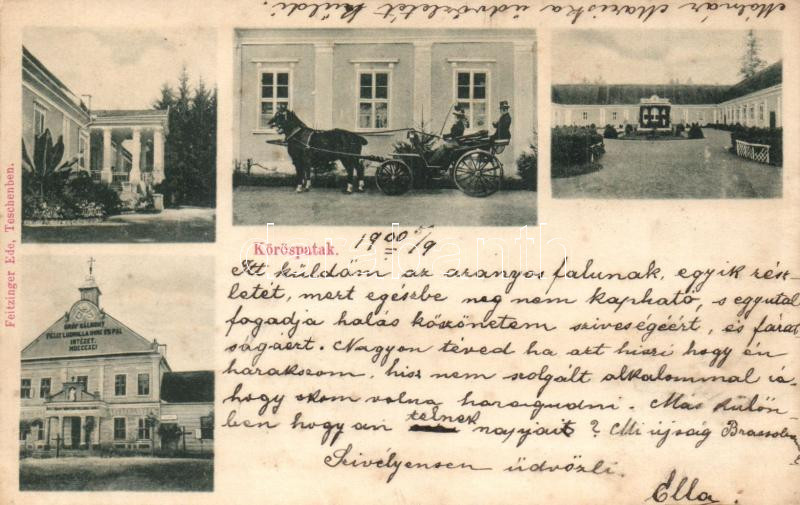 Molnár Mariska üdvözletét küldi.
Feitzinger Ede, Teschenben.
GRÓF KÁLNOKY
FÉLIX LUDMILLA IMRE ÉS PÁL
INTÉZET.
MDCCCXCI
Köröspatak. 1900 5/9
Itt küldöm az aranyos falunak, egyik rész-
letét, mert egészbe neg nem kapható, s egyutal
fogadja halás köszönetem sziveségéért, és fárat
ságáért. Nagyon téved ha azt hiszi hogy én
harakszom, hisz nem szolgált alkalommal
hogy okom volna haragudni. Más külön-
ben hogy an telnek napjait? Mi újság Brassoba
Szivélyensen üdvözli.
Ella.